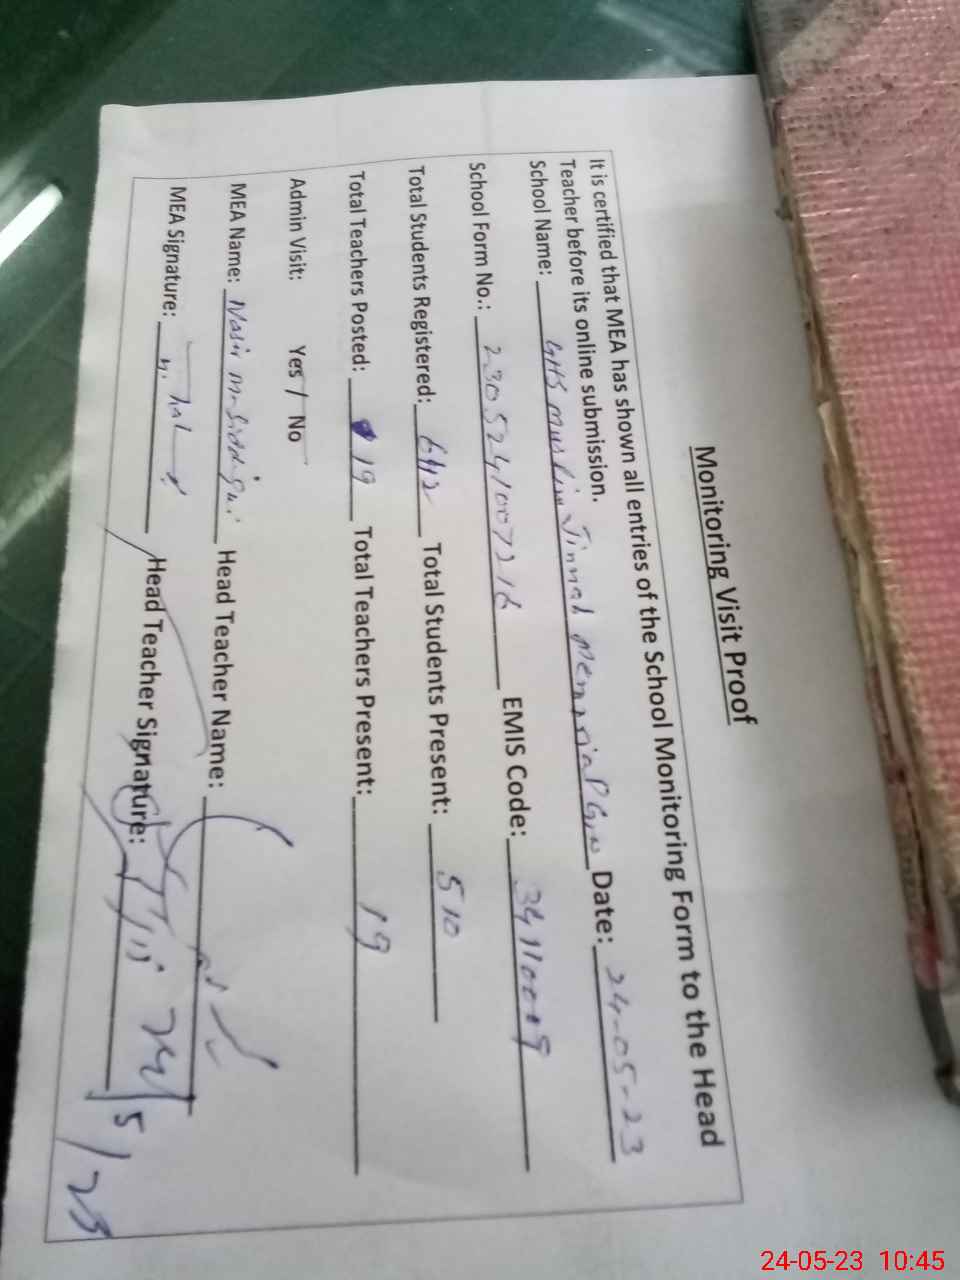 Monitoring Visit Proof
It is certified that MEA has shown all entries of the School Monitoring Form to the Head
Teacher before its online submission.
School Name: GHS Muslim Jinnah Memorial Grw Date: 24-05-23
School Form No.: 2305241007216 EMIS Code: 34110009
Total Students Registered: 642 Total Students Present: 510
Total Teachers Posted: 19 Total Teachers Present: 19
Admin Visit: Yes / No
MEA Name: Nasir M-Siddiqui Head Teacher Name:
MEA Signature: Head Teacher Signature:
24/5/23
24-05-23 10:45